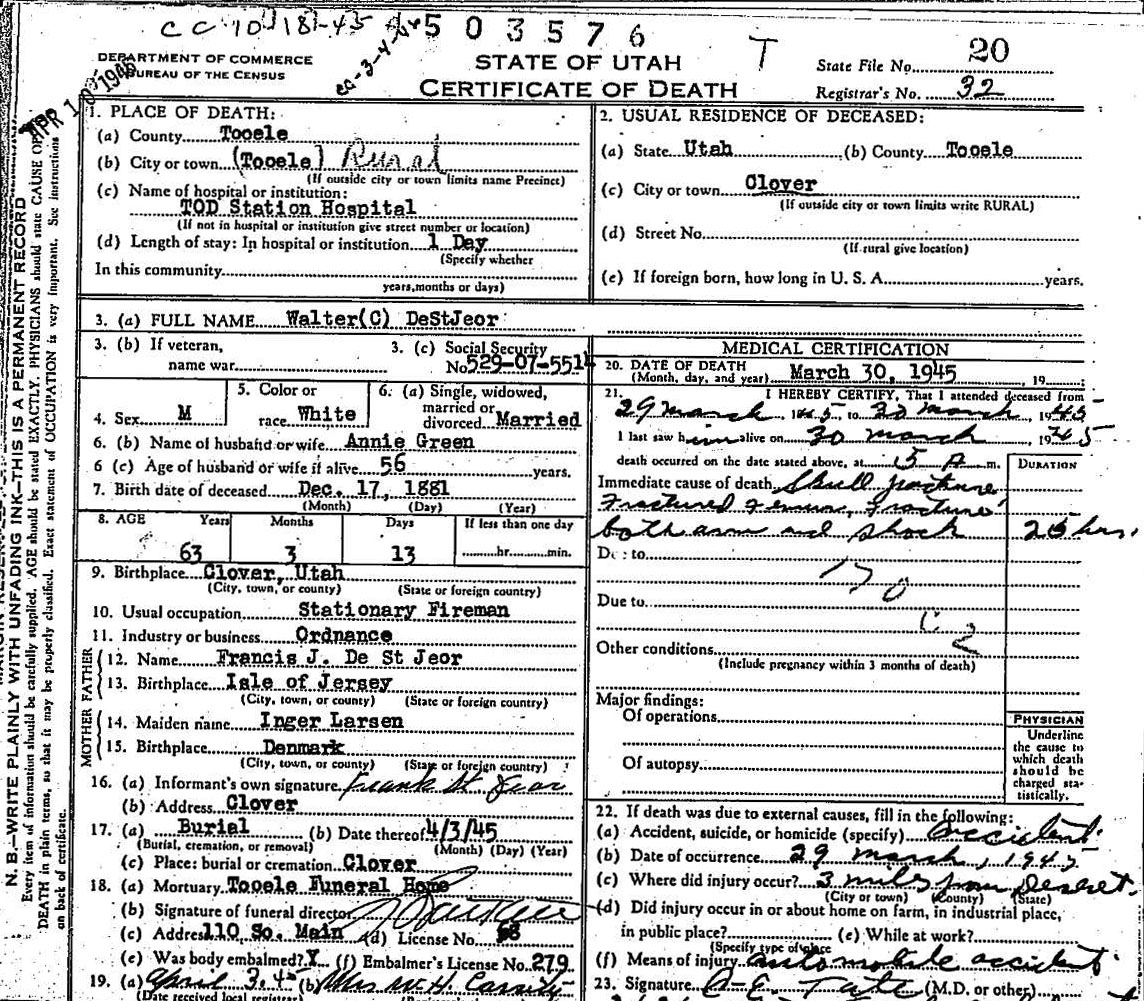 CC 10 18-45
503576
cc-3-4-
T
20
DEPARTMENT OF COMMERCE
BUREAU OF THE CENSUS
STATE OF UTAH
CERTIFICATE OF DEATH
State File No.
Registrar's No. 32
APR 10 1945
1. PLACE OF DEATH:
(a) County Tooele
(b) City or town (Tooele) Rural
(If outside city or town limits name Precinct)
(c) Name of hospital or institution:
TOD Station Hospital
(If not in hospital or institution give street number or location)
(d) Length of stay: In hospital or institution 1 Day
(Specify whether
In this community
years, months or days)
2. USUAL RESIDENCE OF DECEASED:
(a) State Utah (b) County Tooele
(c) City or town Clover
(If outside city or town limits write RURAL)
(d) Street No.
(If rural give location)
(e) If foreign born, how long in U. S. A. years.
3. (a) FULL NAME Walter(C) DeStJeor
3. (b) If veteran, 3. (c) Social Security
name war No 529-07-5514
4. Sex M
5. Color or
race White
6. (a) Single, widowed,
married or
divorced Married
6. (b) Name of husband or wife Annie Green
6 (c) Age of husband or wife if alive 56 years.
7. Birth date of deceased Dec. 17, 1881
(Month) (Day) (Year)
8. AGE Years Months Days If less than one day
63 3 13 hr. min.
9. Birthplace Clover, Utah
(City, town, or county) (State or foreign country)
10. Usual occupation Stationary Fireman
11. Industry or business Ordnance
FATHER
12. Name Francis J. De St Jeor
13. Birthplace Isle of Jersey
(City, town, or county) (State or foreign country)
MOTHER
14. Maiden name Inger Larsen
15. Birthplace Denmark
(City, town, or county) (State or foreign country)
16. (a) Informant's own signature Frank St Jeor
(b) Address Clover
17. (a) Burial (b) Date thereof 4/3/45
(Burial, cremation, or removal) (Month) (Day) (Year)
(c) Place: burial or cremation Clover
18. (a) Mortuary Tooele Funeral Home
(b) Signature of funeral director
(c) Address 110 So. Main (d) License No.
(e) Was body embalmed? X (f) Embalmer's License No. 279
19. (a) April 3, 45 (b) Mrs W. H. Cassity
(Date received local registrar)
MEDICAL CERTIFICATION
20. DATE OF DEATH March 30, 1945
(Month, day, and year) , 19
21. I HEREBY CERTIFY, That I attended deceased from
29 march , 1945 to 30 march , 1945
I last saw him alive on 30 march , 1945
death occurred on the date stated above, at 15 A m.
DURATION
Immediate cause of death Skull fracture
Fractured Femur, Fracture
both arm and shock 25 hrs.
Due to
170
Due to
C 2
Other conditions
(Include pregnancy within 3 months of death)
Major findings:
Of operations
Of autopsy
PHYSICIAN
Underline
the cause to
which death
should be
charged sta-
tistically.
22. If death was due to external causes, fill in the following:
(a) Accident, suicide, or homicide (specify) accident
(b) Date of occurrence 29 march, 1945
(c) Where did injury occur? 3 miles from Deseret.
(City or town) (County) (State)
(d) Did injury occur in or about home on farm, in industrial place,
in public place? (e) While at work?
(Specify type of place
(f) Means of injury automobile accident
23. Signature A. E. Tate (M.D. or other)
N. B.—WRITE PLAINLY WITH UNFADING INK—THIS IS A PERMANENT RECORD
Every item of information should be carefully supplied. AGE should be stated EXACTLY. PHYSICIANS should state CAUSE OF
DEATH in plain terms, so that it may be properly classified. Exact statement of OCCUPATION is very important. See instructions
on back of certificate.